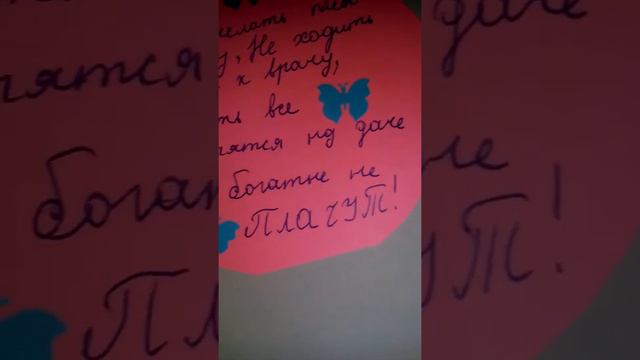 елать
, Не ходить
к врачу,
ть все
ятся на даче
богатые не
ПЛАЧУТ!